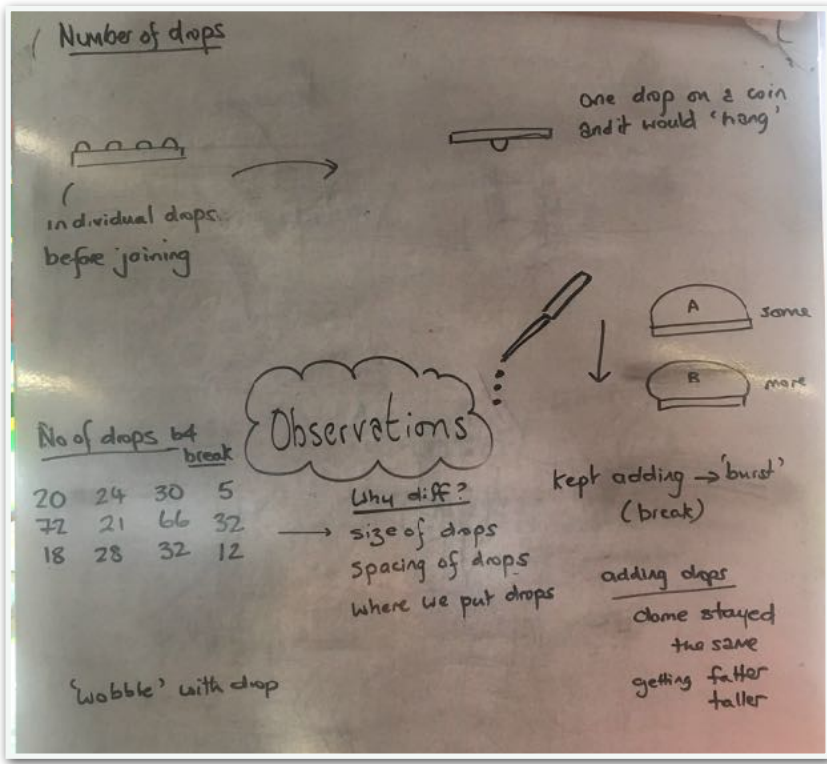 Number of drops
one drop on a coin
and it would 'hang'
individual drops
before joining
A
some
B
more
Observations
No of drops b4
break
20 24 30 5
72 21 66 32
18 28 32 12
Why diff?
size of drops
spacing of drops
where we put drops
kept adding → 'burst'
(break)
adding drops
dome stayed
the same
getting fatter
taller
'wobble' with drop